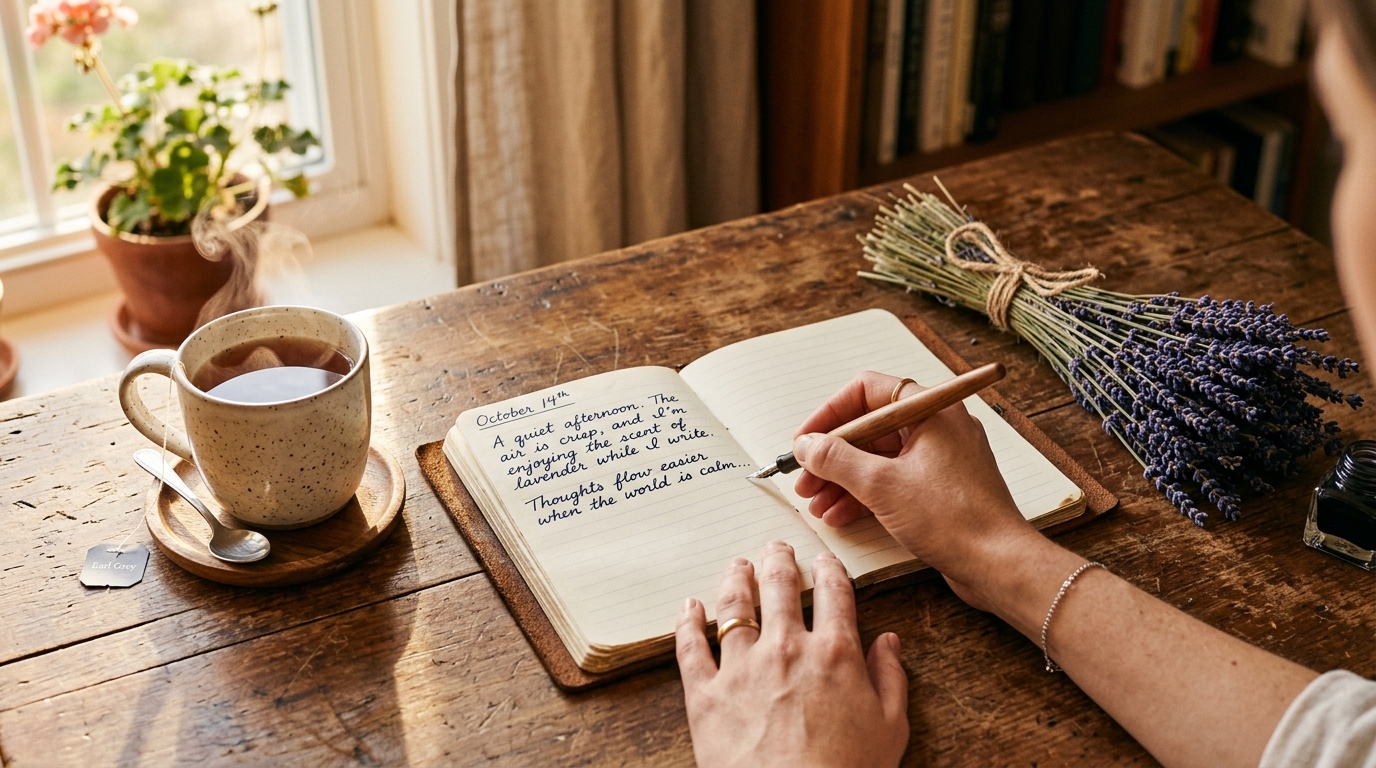 October 14th
A quiet afternoon. The
air is crisp, and I'm
enjoying the scent of
lavender while I write.
Thoughts flow easier
when the world is calm...
Earl Grey